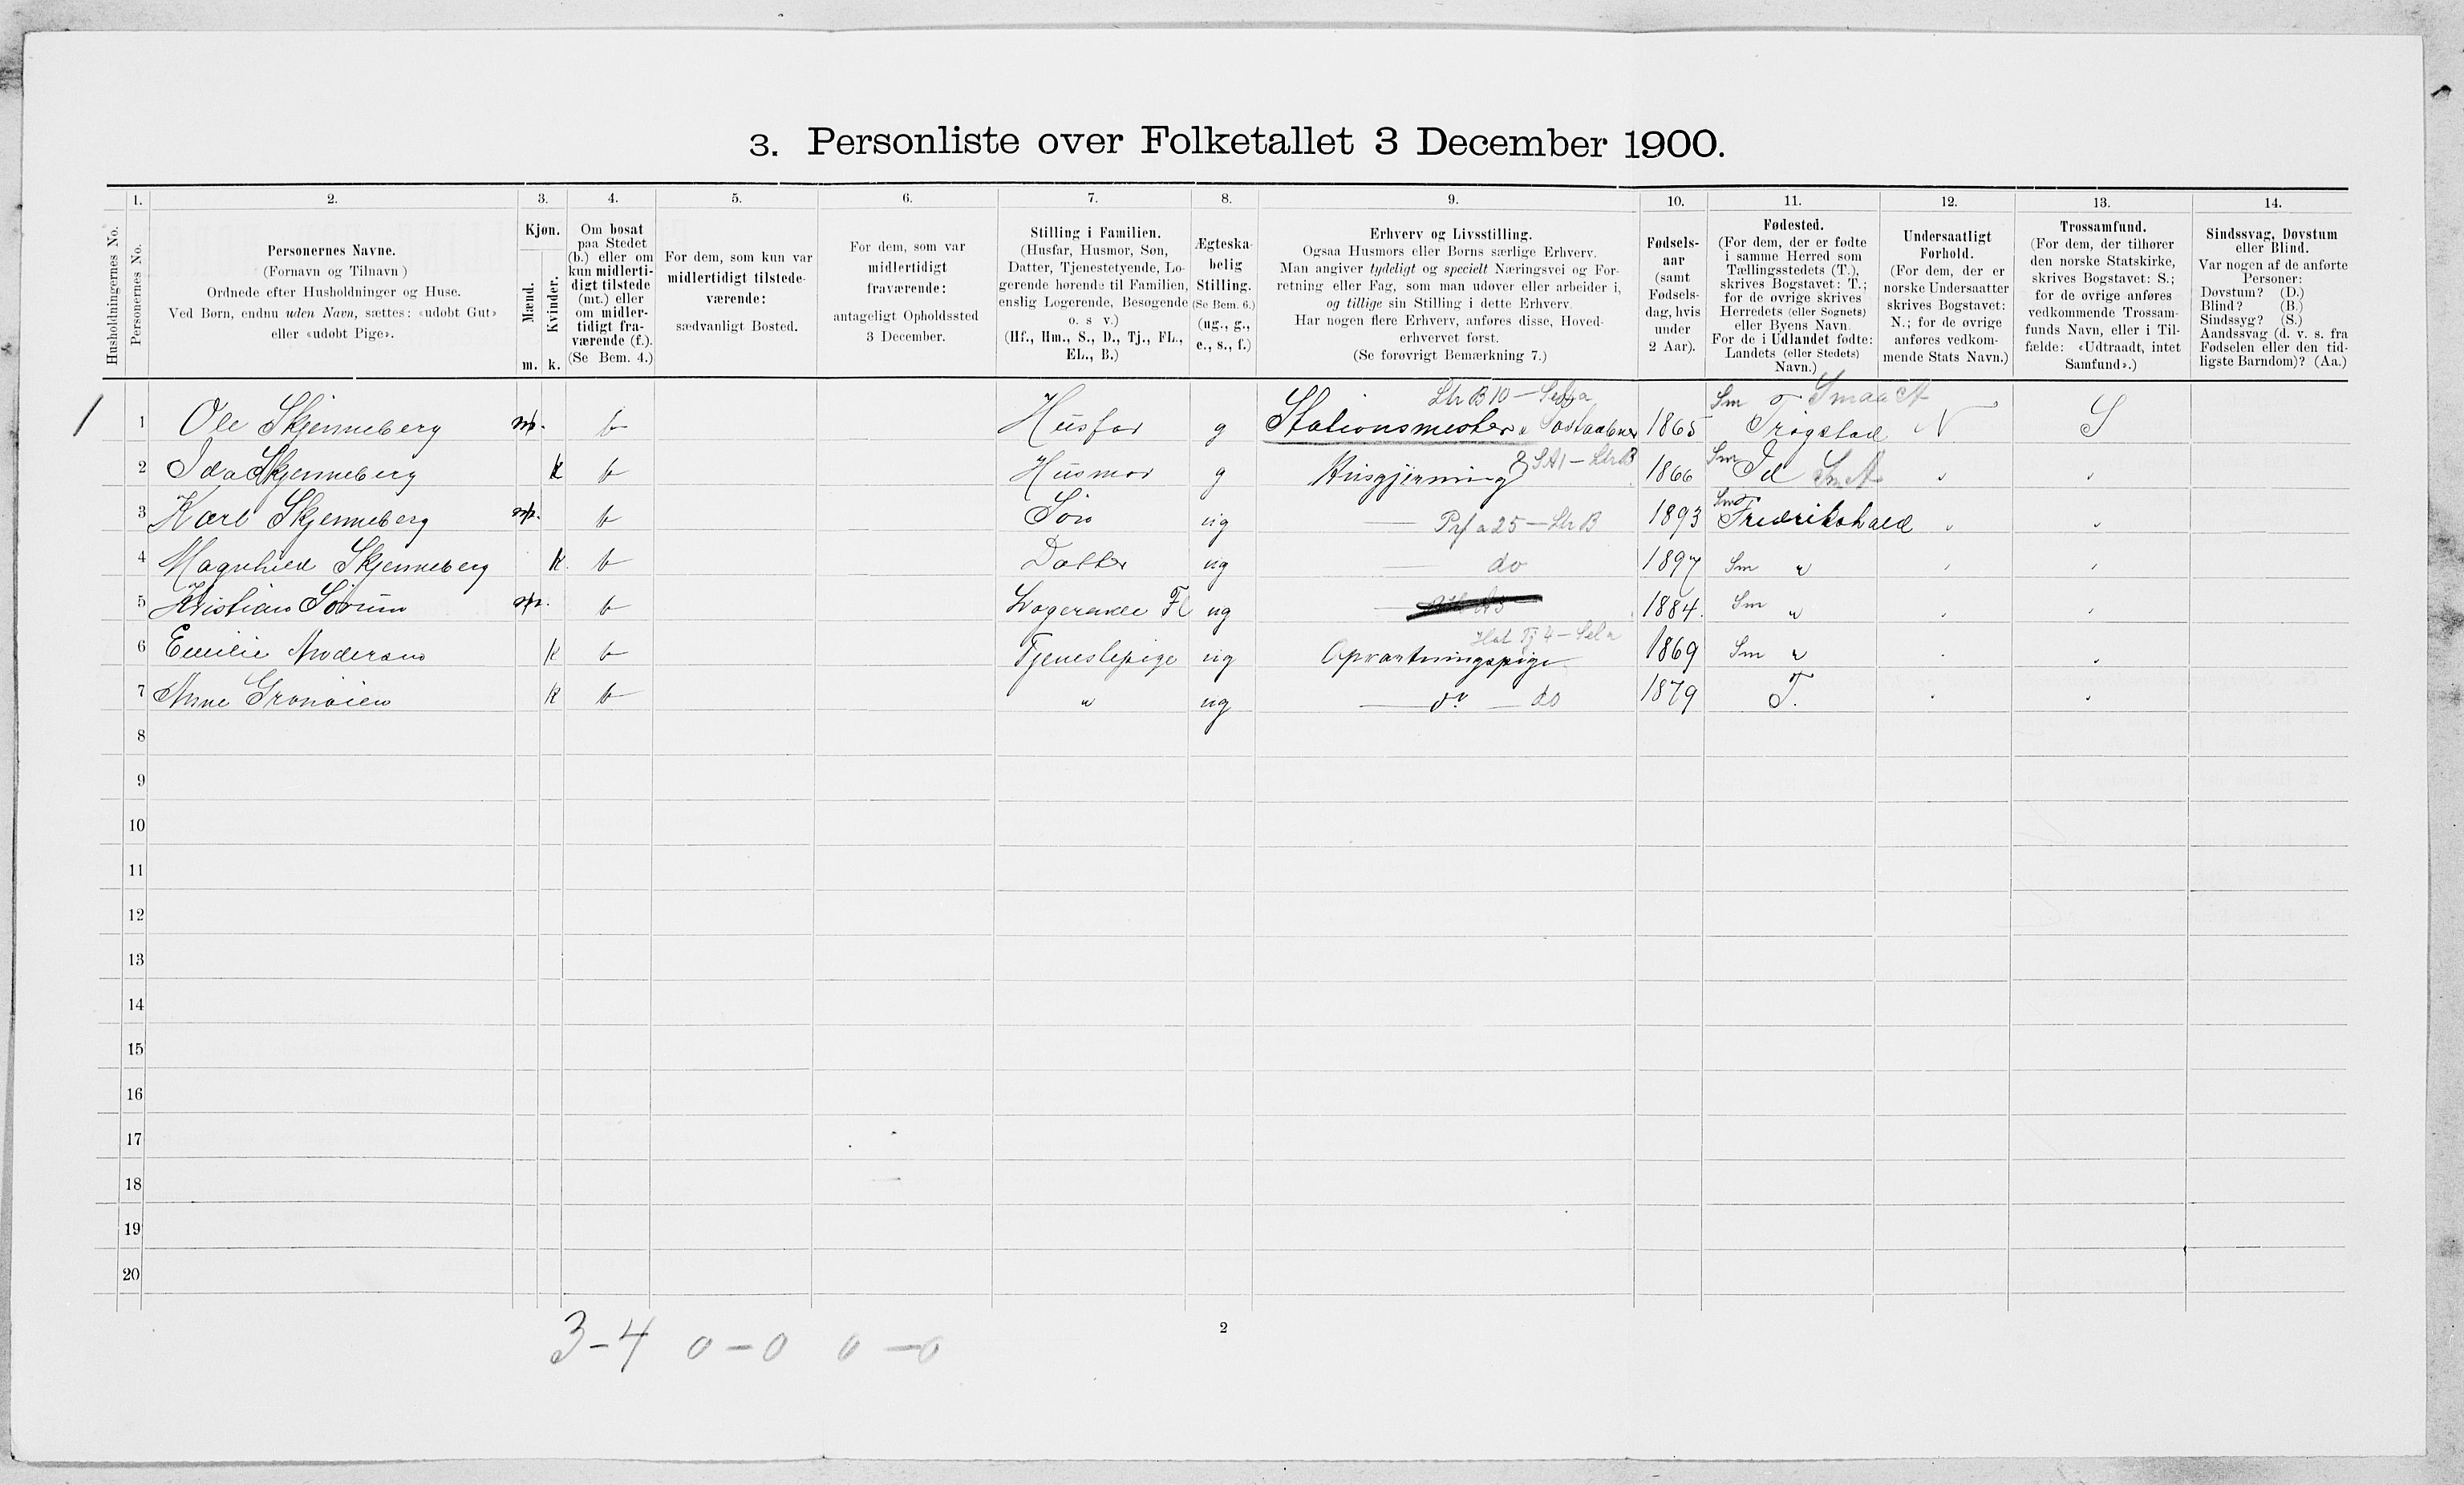 3. Personliste over Folketallet 3 December 1900.
1. 2. 3. 4. 5. 6. 7. 8. 9. 10. 11. 12. 13. 14.
Husholdningernes No.
Personernes No.
Personernes Navne.
(Fornavn og Tilnavn)
Ordnede efter Husholdninger og Huse.
Ved Børn, endnu uden Navn, sættes: «udøbt Gut»
eller «udøbt Pige».
Kjøn.
Mænd.
Kvinder.
m. k.
Om bosat
paa Stedet
(b.) eller om
kun midlerti-
digt tilstede
(mt.) eller
om midler-
tidigt fra-
værende (f.).
(Se Bem. 4.)
For dem, som kun var
midlertidigt tilstede-
værende:
sædvanligt Bosted.
For dem, som var
midlertidigt
fraværende:
antageligt Opholdssted
3 December.
Stilling i Familien.
(Husfar, Husmor, Søn,
Datter, Tjenestetyende, Lo-
gerende hørende til Familien,
enslig Logerende, Besøgende
o. s v.)
(Hf., Hm., S., D., Tj., FL.,
EL., B.)
Ægteska-
belig
Stilling.
(Se Bem. 6.)
(ug., g.,
e., s., f.)
Erhverv og Livsstilling.
Ogsaa Husmors eller Børns særlige Erhverv.
Man angiver tydeligt og specielt Næringsvei og For-
retning eller Fag, som man udøver eller arbeider i,
og tillige sin Stilling i dette Erhverv.
Har nogen flere Erhverv, anføres disse, Hoved-
erhvervet først.
(Se forøvrigt Bemærkning 7.)
Fødsels-
aar
(samt
Fødsels-
dag, hvis
under
2 Aar).
Fødested.
(For dem, der er fødte
i samme Herred som
Tællingsstedets (T.),
skrives Bogstavet: T.;
for de øvrige skrives
Herredets (eller Sognets)
eller Byens Navn.
For de i Udlandet fødte:
Landets (eller Stedets)
Navn.)
Undersaatligt
Forhold.
(For dem, der er
norske Undersaatter
skrives Bogstavet:
N.; for de øvrige
anføres vedkom-
mende Stats Navn.)
Trossamfund.
(For dem, der tilhører
den norske Statskirke,
skrives Bogstavet: S.;
for de øvrige anføres
vedkommende Trossam-
funds Navn, eller i Til-
fælde: «Udtraadt, intet
Samfund».)
Sindssvag, Døvstum
eller Blind.
Var nogen af de anførte
Personer:
Døvstum? (D.)
Blind? (B.)
Sindssyg? (S.)
Aandssvag (d. v. s. fra
Fødselen eller den tid-
ligste Barndom)? (Aa.)
Smaa A
1 1 Ole Skjenneberg m. b Husfar g Stationsmester 1865 Sm Trøgstad N S
2 Ida Skjenneberg k b Husmor g Husgjerning 1866 Sm Id Sm A " "
3 Karl Skjenneberg m. b Søn ug — Prf a 25 — Str B 1893 Sm Fredrikshald " "
4 Magnhild Skjenneberg k. b Datter ug — do 1897 Sm " " "
5 Kristian Sørum m. b Logerende Fl ug — 1884. Sm " " "
6 Emilie Andersen k b Tjenestepige ug Opvartningspige 1869 Sm " " "
7 Anne Grønøien k b " ug — do — do 1879 T. " "
8
9
10
11
12
13
14
15
16
17
18
19
20
3-4 0-0 0-0
2